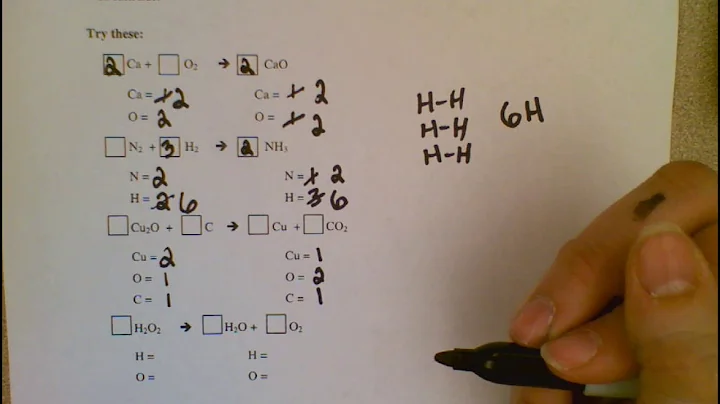 Try these:
2 Ca + O₂ → 2 CaO
Ca = 1 2 Ca = 1 2
O = 2 O = 1 2
N₂ + 3 H₂ → 2 NH₃
N = 2 N = 1 2
H = 2 6 H = 3 6
Cu₂O + C → Cu + CO₂
Cu = 2 Cu = 1
O = 1 O = 2
C = 1 C = 1
H₂O₂ → H₂O + O₂
H = H =
O = O =
H-H
H-H 6H
H-H